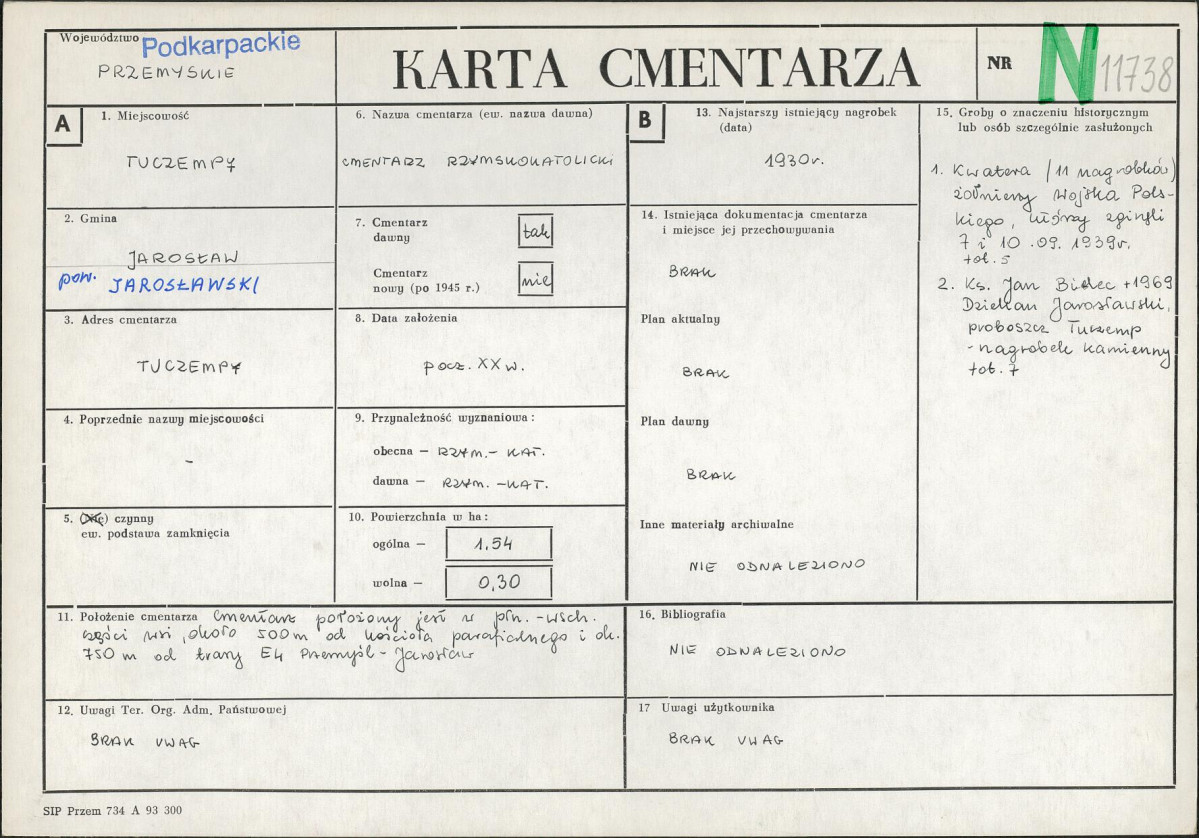 Województwo Podkarpackie
PRZEMYSKIE
KARTA CMENTARZA
NR N 11738
A
1. Miejscowość
TUCZEMPY
2. Gmina
JAROSŁAW
pow. JAROSŁAWSKI
3. Adres cmentarza
TUCZEMPY
4. Poprzednie nazwy miejscowości
-
5. (Nie) czynny
ew. podstawa zamknięcia
6. Nazwa cmentarza (ew. nazwa dawna)
CMENTARZ RZYMSKOKATOLICKI
7. Cmentarz
dawny
tak
Cmentarz
nowy (po 1945 r.)
nie
8. Data założenia
pocz. XX w.
9. Przynależność wyznaniowa :
obecna – RZYM.- KAT.
dawna – RZYM. -KAT.
10. Powierzchnia w ha :
ogólna – 1,54
wolna – 0,30
11. Położenie cmentarza Cmentarz położony jest w płn.-wsch.
części wsi, około 500 m od kościoła parafialnego i ok.
750 m od trasy E4 Przemyśl - Jarosław
12. Uwagi Ter. Org. Adm. Państwowej
BRAK UWAG
B
13. Najstarszy istniejący nagrobek
(data)
1930r.
14. Istniejąca dokumentacja cmentarza
i miejsce jej przechowywania
BRAK
Plan aktualny
BRAK
Plan dawny
BRAK
Inne materiały archiwalne
NIE ODNALEZIONO
15. Groby o znaczeniu historycznym
lub osób szczególnie zasłużonych
1. Kwatera (11 nagrobków)
żołnierzy Wojska Pols-
kiego, którzy zginęli
7 i 10.09.1939r.
fot. 5
2. Ks. Jan Bielec +1969
Dziekan Jarosławski,
proboszcz Tuczemp
- nagrobek kamienny
fot. 7
16. Bibliografia
NIE ODNALEZIONO
17 Uwagi użytkownika
BRAK UWAG
SIP Przem 734 A 93 300